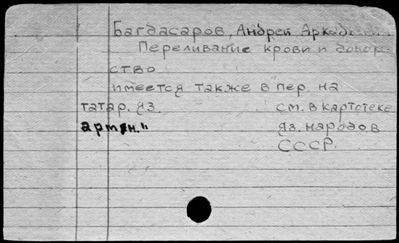 Багдасаров, Андрей
Переливание крови и донор-
ство
имеется также в пер. на
татар. яз. см. в картотеке
армян." яз. народов
СССР